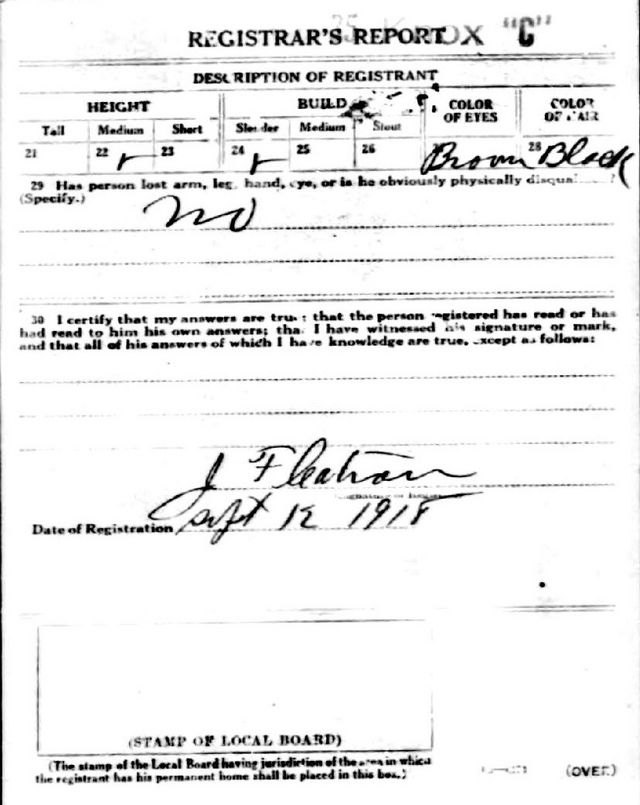 REGISTRAR'S REPORT BOX "C"
DESCRIPTION OF REGISTRANT
HEIGHT BUILD COLOR OF EYES COLOR OF HAIR
Tall Medium Short Slender Medium Stout
21 22 ✓ 23 24 ✓ 25 26 Brown 28 Black
29 Has person lost arm, leg, hand, eye, or is he obviously physically
(Specify.) no
30 I certify that my answers are true; that the person registered has read or has
had read to him his own answers; that I have witnessed his signature or mark,
and that all of his answers of which I have knowledge are true, except as follows:
J
Date of Registration Sept 12 1918
(STAMP OF LOCAL BOARD)
(The stamp of the Local Board having jurisdiction of the area in which
the registrant has his permanent home shall be placed in this box.)
(OVER)